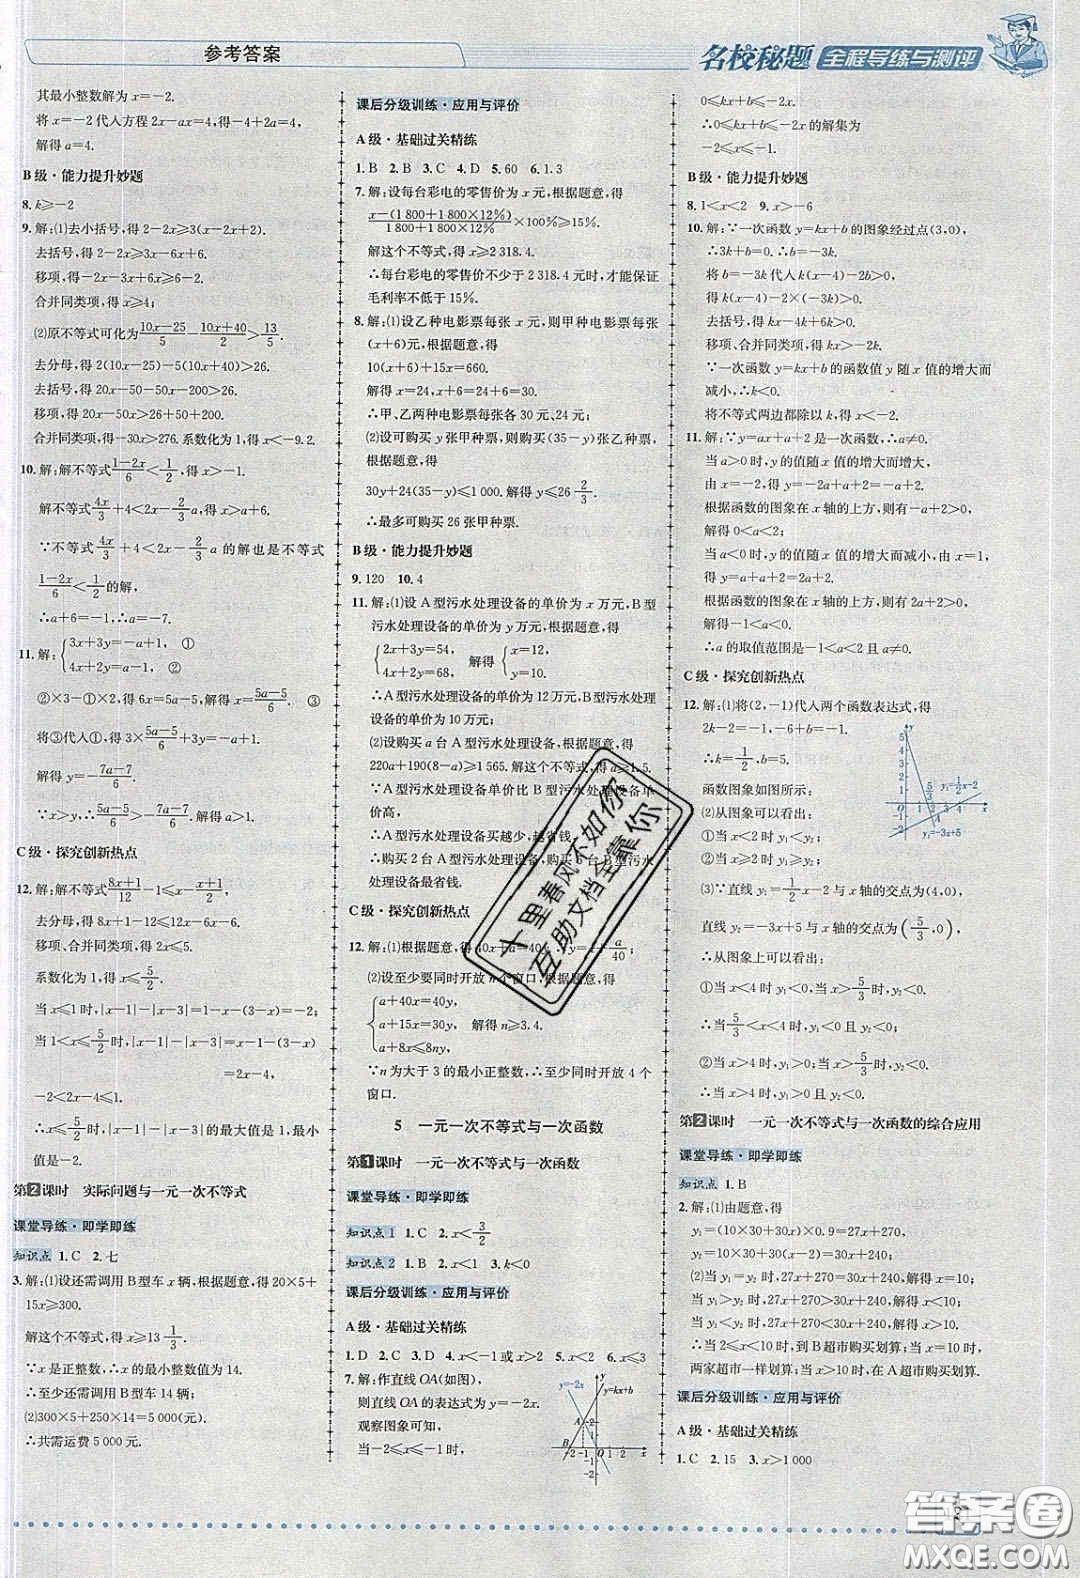 参考答案
名校秘题 全程导练与测评
其最小整数解为x=-2.
将x=-2代人方程2x-ax=4,得-4+2a=4,
解得a=4.
B级·能力提升妙题
8.k≥-2
9.解:(1)去小括号,得2-2x≥3(x-2x+2).
去括号,得2-2x≥3x-6x+6.
移项,得-2x-3x+6x≥6-2.
合并同类项,得x≥4;
(2)原不等式可化为(10x-25)/5-(10x+40)/2>13/5.
去分母,得2(10x-25)-5(10x+40)>26.
去括号,得20x-50-50x-200>26.
移项,得20x-50x>26+50+200.
合并同类项,得-30x>276.系数化为1,得x<-9.2.
10.解:解不等式(1-2x)/6<1/2,得x>-1.
解不等式4x/3+4<2x-2/3a,得x>a+6.
∵不等式4x/3+4<2x-2/3a的解也是不等式
(1-2x)/6<1/2的解,
∴a+6=-1,∴a=-7.
11.解:{3x+3y=-a+1, ①
4x+2y=a-1. ②
②×3-①×2,得6x=5a-5,解得x=(5a-5)/6. ③
将③代人①,得3×(5a-5)/6+3y=-a+1.
解得y=-(7a-7)/6.
∵x>y,∴(5a-5)/6>-(7a-7)/6.解得a>1.
C级·探究创新热点
12.解:解不等式(8x+1)/12-1≤x-(x+1)/2,
去分母,得8x+1-12≤12x-6x-6.
移项、合并同类项,得2x≤5.
系数化为1,得x≤5/2.
当x≤1时,|x-1|-|x-3|=1-x-(3-x)=-2;
当1<x≤5/2时,|x-1|-|x-3|=x-1-(3-x)
=2x-4,
-2<2x-4≤1.
∴x≤5/2时,|x-1|-|x-3|的最大值是1,最小
值是-2.
第2课时 实际问题与一元一次不等式
课堂导练·即学即练
知识点 1.C 2.七
3.解:(1)设还需调用B型车x辆,根据题意,得20×5+
15x≥300.
解这个不等式,得x≥13 1/3.
∵x是正整数,∴x的最小整数值为14.
∴至少还需调用B型车14辆;
(2)300×5+250×14=5 000(元).
∴共需运费5 000元.
课后分级训练·应用与评价
A级·基础过关精练
1.B 2.B 3.C 4.D 5.60 6.1.3
7.解:设每台彩电的零售价为x元,根据题意,得
(x-(1 800+1 800×12%))/(1 800+1 800×12%)×100%≥15%.
解这个不等式,得x≥2 318.4.
∴每台彩电的零售价不少于2 318.4元时,才能保证
毛利率不低于15%.
8.解:(1)设乙种电影票每张x元,则甲种电影票每张
(x+6)元,根据题意,得
10(x+6)+15x=660.
解得x=24,x+6=24+6=30.
∴甲、乙两种电影票每张各30元,24元;
(2)设可购买y张甲种票,则购买(35-y)张乙种票,
根据题意,得
30y+24(35-y)≤1 000.解得y≤26 2/3.
∴最多可购买26张甲种票.
B级·能力提升妙题
9.120 10.4
11.解:(1)设A型污水处理设备的单价为x万元,B型
污水处理设备的单价为y万元,根据题意,得
{2x+3y=54, 解得{x=12,
4x+2y=68, y=10.
∴A型污水处理设备的单价为12万元,B型污水处
理设备的单价为10万元;
(2)设购买a台A型污水处理设备,根据题意,得
220a+190(8-a)≥1 565.解这个不等式,得a≥1.5.
∵A型污水处理设备单价比B型污水处理设备单
价高,
∴A型污水处理设备买越少,越省钱.
∴购买2台A型污水处理设备,购买6台B型污水
处理设备最省钱.
C级·探究创新热点
12.解:(1)根据题意,得40x+a=40y
(2)设至少要同时开放n个窗口,根据题意,得
{a+40x=40y,
a+15x=30y, 解得n≥3.4.
a+8x≤8ny,
∵n为大于3的最小正整数,∴至少要同时开放4个
窗口.
5 一元一次不等式与一次函数
第1课时 一元一次不等式与一次函数
课堂导练·即学即练
知识点1 1.C 2.x<3/2
知识点2 1.B 2.x<1 3.k<0
课后分级训练·应用与评价
A级·基础过关精练
1.D 2.C 3.D 4.x<-1或x>2 5.x<2 6.x≤3
7.解:作直线OA(如图),
则直线OA的表达式为y=-2x.
观察图象可知,
当-2≤x≤-1时,
y=-2x
y=kx+b
0≤kx+b≤-2x.
∴0≤kx+b≤-2x的解集为
-2≤x≤-1.
B级·能力提升妙题
8.1<x<2 9.x>-6
10.解:∵一次函数y=kx+b的图象经过点(3,0),
∴3k+b=0,∴b=-3k.
将b=-3k代人k(x-4)-2b>0,
得k(x-4)-2×(-3k)>0.
去括号,得kx-4k+6k>0.
移项、合并同类项,得kx>-2k.
∵一次函数y=kx+b的函数值y随x值的增大而
减小,∴k<0.
将不等式两边都除以k,得x<-2.
11.解:∵y=ax+a+2是一次函数,∴a≠0.
当a>0时,y的值随x值的增大而增大,
由x=-2,得y=-2a+a+2=-a+2.
根据函数的图象在x轴的上方,则有-a+2>0,
解得0<a<2;
当a<0时,y的值随x值的增大而减小,由x=1,
得y=a+a+2=2a+2.
根据函数的图象在x轴的上方,则有2a+2>0,
解得-1<a<0.
∴a的取值范围是-1<a<2且a≠0.
C级·探究创新热点
12.解:(1)将(2,-1)代人两个函数表达式,得
2k-2=-1,-6+b=-1.
∴k=1/2,b=5.
函数图象如图所示;
(2)从图象可以看出:
①当x<2时,y₁<y₂;
②当x≥2时,y₁≥y₂;
(3)∵直线y₂=1/2x-2与x轴的交点为(4,0),
直线y₂=-3x+5与x轴的交点为(5/3,0),
∴从图象上可以看出:
①当x<4时,y₁<0;当x>5/3时,y₂<0.
∴当5/3<x<4时,y₁<0,y₂<0.
②当x>4时,y₁>0;当x>5/3时,y₂<0.
∴当x>4时,y₁>0,y₂<0.
第2课时 一元一次不等式与一次函数的综合应用
课堂导练·即学即练
知识点 1.B
2.解:(1)由题意,得
y₁=(10×30+30x)×0.9=27x+270,
y₂=10×30+30(x-20)=30x+240;
(2)当y₁=y₂时,27x+270=30x+240,解得x=10;
当y₁>y₂时,27x+270>30x+240,解得x<10;
当y₁<y₂时,27x+270<30x+240,解得x>10.
∴当2≤x<10时,到B超市购买划算,当x=10时,
两家超市一样划算;当x>10时,在A超市购买划算.
课后分级训练·应用与评价
A级·基础过关精练
1.C 2.15 3.x>1 000
十里春风不如你
互助文档全靠你
答案圈
MXQE.COM